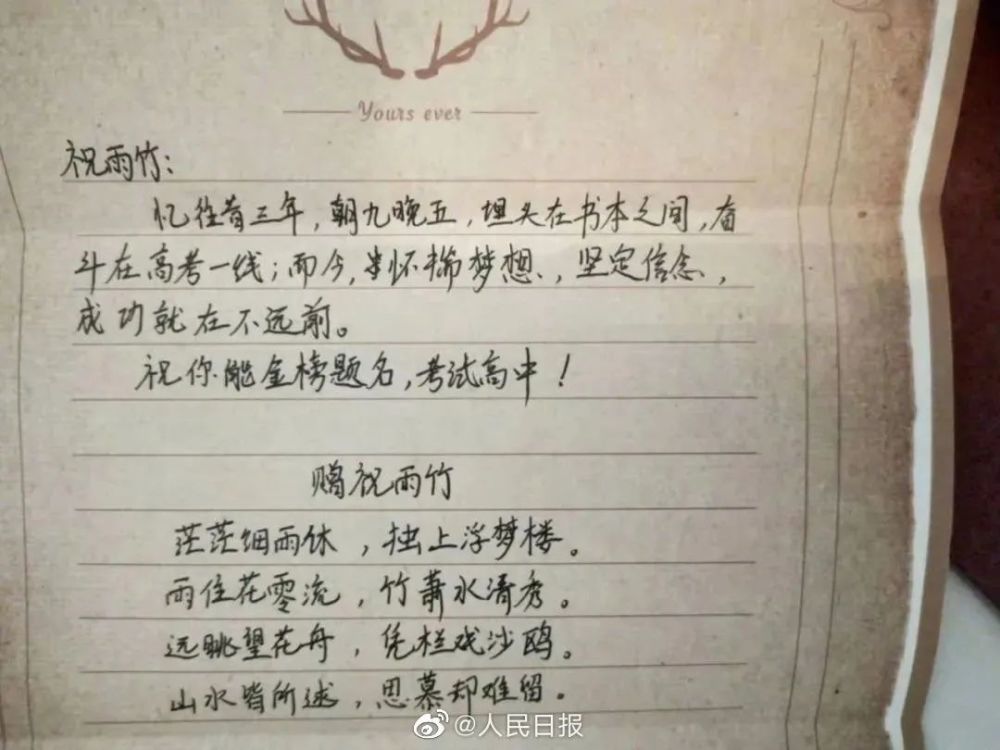 Yours ever
祝雨竹：
忆往昔三年，朝九晚五，埋头在书本之间，奋
斗在高考一线；而今，半怀揣梦想，坚定信念，
成功就在不远前。
祝你能金榜题名，考试高中！
赠祝雨竹
茫茫细雨休，独上浮梦楼。
雨住花零流，竹萧水清秀。
远眺望花舟，凭栏戏沙鸥。
山水皆所述，思慕却难留。
@人民日报